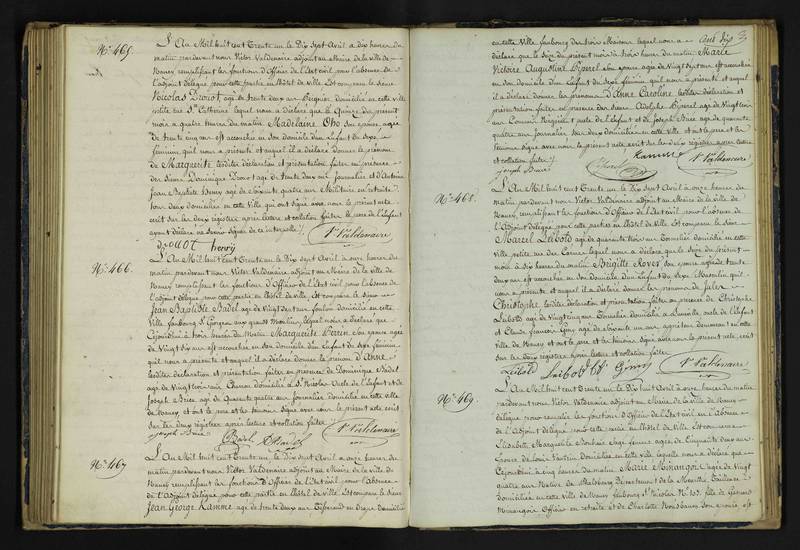 N° 465
L'An Mil huit cent Trente un le Dix Sept Avril à dix heures du
matin pardevant nous Victor Valdenaire adjoint au Maire de la ville de
Nancy remplissant les fonctions d'Officier de l'Etat civil pour l'absence de
l'adjoint délégué pour cette partie en l'hôtel de Ville Est comparu le Sieur
Nicolas Drouot, agé de trente deux ans domicilié en cette ville
petite rue Ste Catherine lequel nous a déclaré que le Quinze du présent
mois à quatre heures du matin Madelaine Oho Son épouse agée
de trente cinq ans est accouchée en son domicile d'un Enfant du Sexe
féminin qu'il nous a présenté et auquel il a déclaré donner le prénom
de Marguerite lesdites déclaration et présentation faites en présence
des Sieurs Dominique Drouot agé de trente deux ans journalier et d'Antoine
Jean Baptiste Henry agé de Cinquante quatre ans Militaire en retraite
tous deux domiciliés en cette Ville qui ont Signé avec nous le présent acte
écrit sur les deux registres après lecture et collation faites le père de l'Enfant
ayant déclaré ne Savoir Signer de ce interpellé
drouot henry Vr Valdenaire
N° 466
L'An Mil huit cent Trente un le Dix Sept Avril à onze heures du
matin pardevant nous Victor Valdenaire adjoint au Maire de la ville de
Nancy remplissant les fonctions d'Officier de l'Etat civil pour l'absence de
l'adjoint délégué pour cette partie en l'hôtel de Ville, Est comparu le Sieur
Jean Baptiste Badel agé de Vingt Sept ans domicilié en cette
Ville faubourg St Georges aux grands Moulins, lequel nous a déclaré que
Cejourd'hui à trois heures du Matin Marguerite Perrin Son épouse agée
de Vingt Six ans est accouchée en Son domicile d'un Enfant du Sexe féminin
qu'il nous a présenté et auquel il a déclaré donner le prénom d'Anne
lesdites déclaration et présentation faites en présence de Dominique Badel
agé de Vingt trois ans domicilié à St Nicolas Oncle de l'Enfant et de
Joseph Brice agé de Quarante quatre ans journalier domicilié en cette ville
de Nancy, et ont le père et les témoins Signé avec nous le présent acte écrit
sur les deux registres après lecture et collation faites
joseph Brice Badel Vr Valdenaire
N° 467
L'An Mil huit cent Trente un le Dix Sept Avril à onze heures du
matin pardevant nous Victor Valdenaire adjoint au Maire de la ville de
Nancy remplissant les fonctions d'Officier de l'Etat civil pour l'Absence
de l'Adjoint délégué pour cette partie en l'hôtel de Ville Est comparu le Sieur
Jean George Kamme agé de trente deux ans Tisserand domicilié
en cette Ville faubourg des trois Maisons lequel nous a
déclaré que le Six du présent mois à trois heures du matin Marie
Victoire Augustine Piperel Son épouse agée de Vingt Sept ans est accouchée
en Son domicile d'un Enfant du Sexe féminin qu'il nous a présenté et auquel
il a déclaré donner les prénoms d'Anne Caroline lesdites déclaration et
présentation faites en présence des Sieurs Adolphe Piperel agé de Vingt trois
ans oncle de l'Enfant et de Joseph Brice agé de quarante
quatre ans journalier tous deux domiciliés en cette Ville et ont le père et les
témoins Signé avec nous le présent acte écrit sur les deux registres après lecture
et collation faites
joseph Brice Piperel Kamme Vr Valdenaire
N° 468
L'An Mil huit cent Trente un le Dix Sept Avril à onze heures du
matin pardevant nous Victor Valdenaire adjoint au Maire de la ville de
Nancy, remplissant les fonctions d'Officier de l'Etat civil pour l'absence de
l'Adjoint délégué pour cette partie en l'hôtel de Ville Est comparu le Sieur
Marcel Leibold agé de quarante trois ans domicilié en cette
ville lequel nous a déclaré que le Seize du présent
mois à dix heures du matin Brigitte Royer Son épouse agée de trente
deux ans est accouchée en Son domicile d'un Enfant du Sexe Masculin qu'il
nous a présenté et auquel il a déclaré donner les prénoms de Jules
Christophe lesdites déclaration et présentation faites en présence de Christophe
Leibold agé de Vingt cinq ans domicilié à Lunéville, oncle de l'Enfant
et Claude François Gény agé de Soixante un ans demeurant en cette
Ville de Nancy et ont le père et les témoins Signé avec nous le présent acte, écrit
sur les deux registres après lecture et collation faites
Leibold Leibold Gény Vr Valdenaire
N° 469
L'An Mil huit cent Trente un le Dix huit Avril à onze heures du matin
pardevant nous Victor Valdenaire adjoint au Maire de la Ville de Nancy
délégué pour remplir les fonctions d'Officier de l'Etat civil en l'Absence
de l'Adjoint délégué pour cette partie en l'hôtel de Ville Est comparue
Elisabeth Marguerite Sage femme agée de Cinquante deux ans
Epouse de Louis domiciliée en cette Ville laquelle nous a déclaré que
Cejourd'hui à cinq heures du matin Marie Minangoy agée de Vingt
quatre ans Native de Phalsbourg Département de la Meurthe,
domiciliée en cette Ville de Nancy faubourg St Nicolas N° 107 fille de
Minangoy Officier en retraite et de Charlotte Son épouse, est